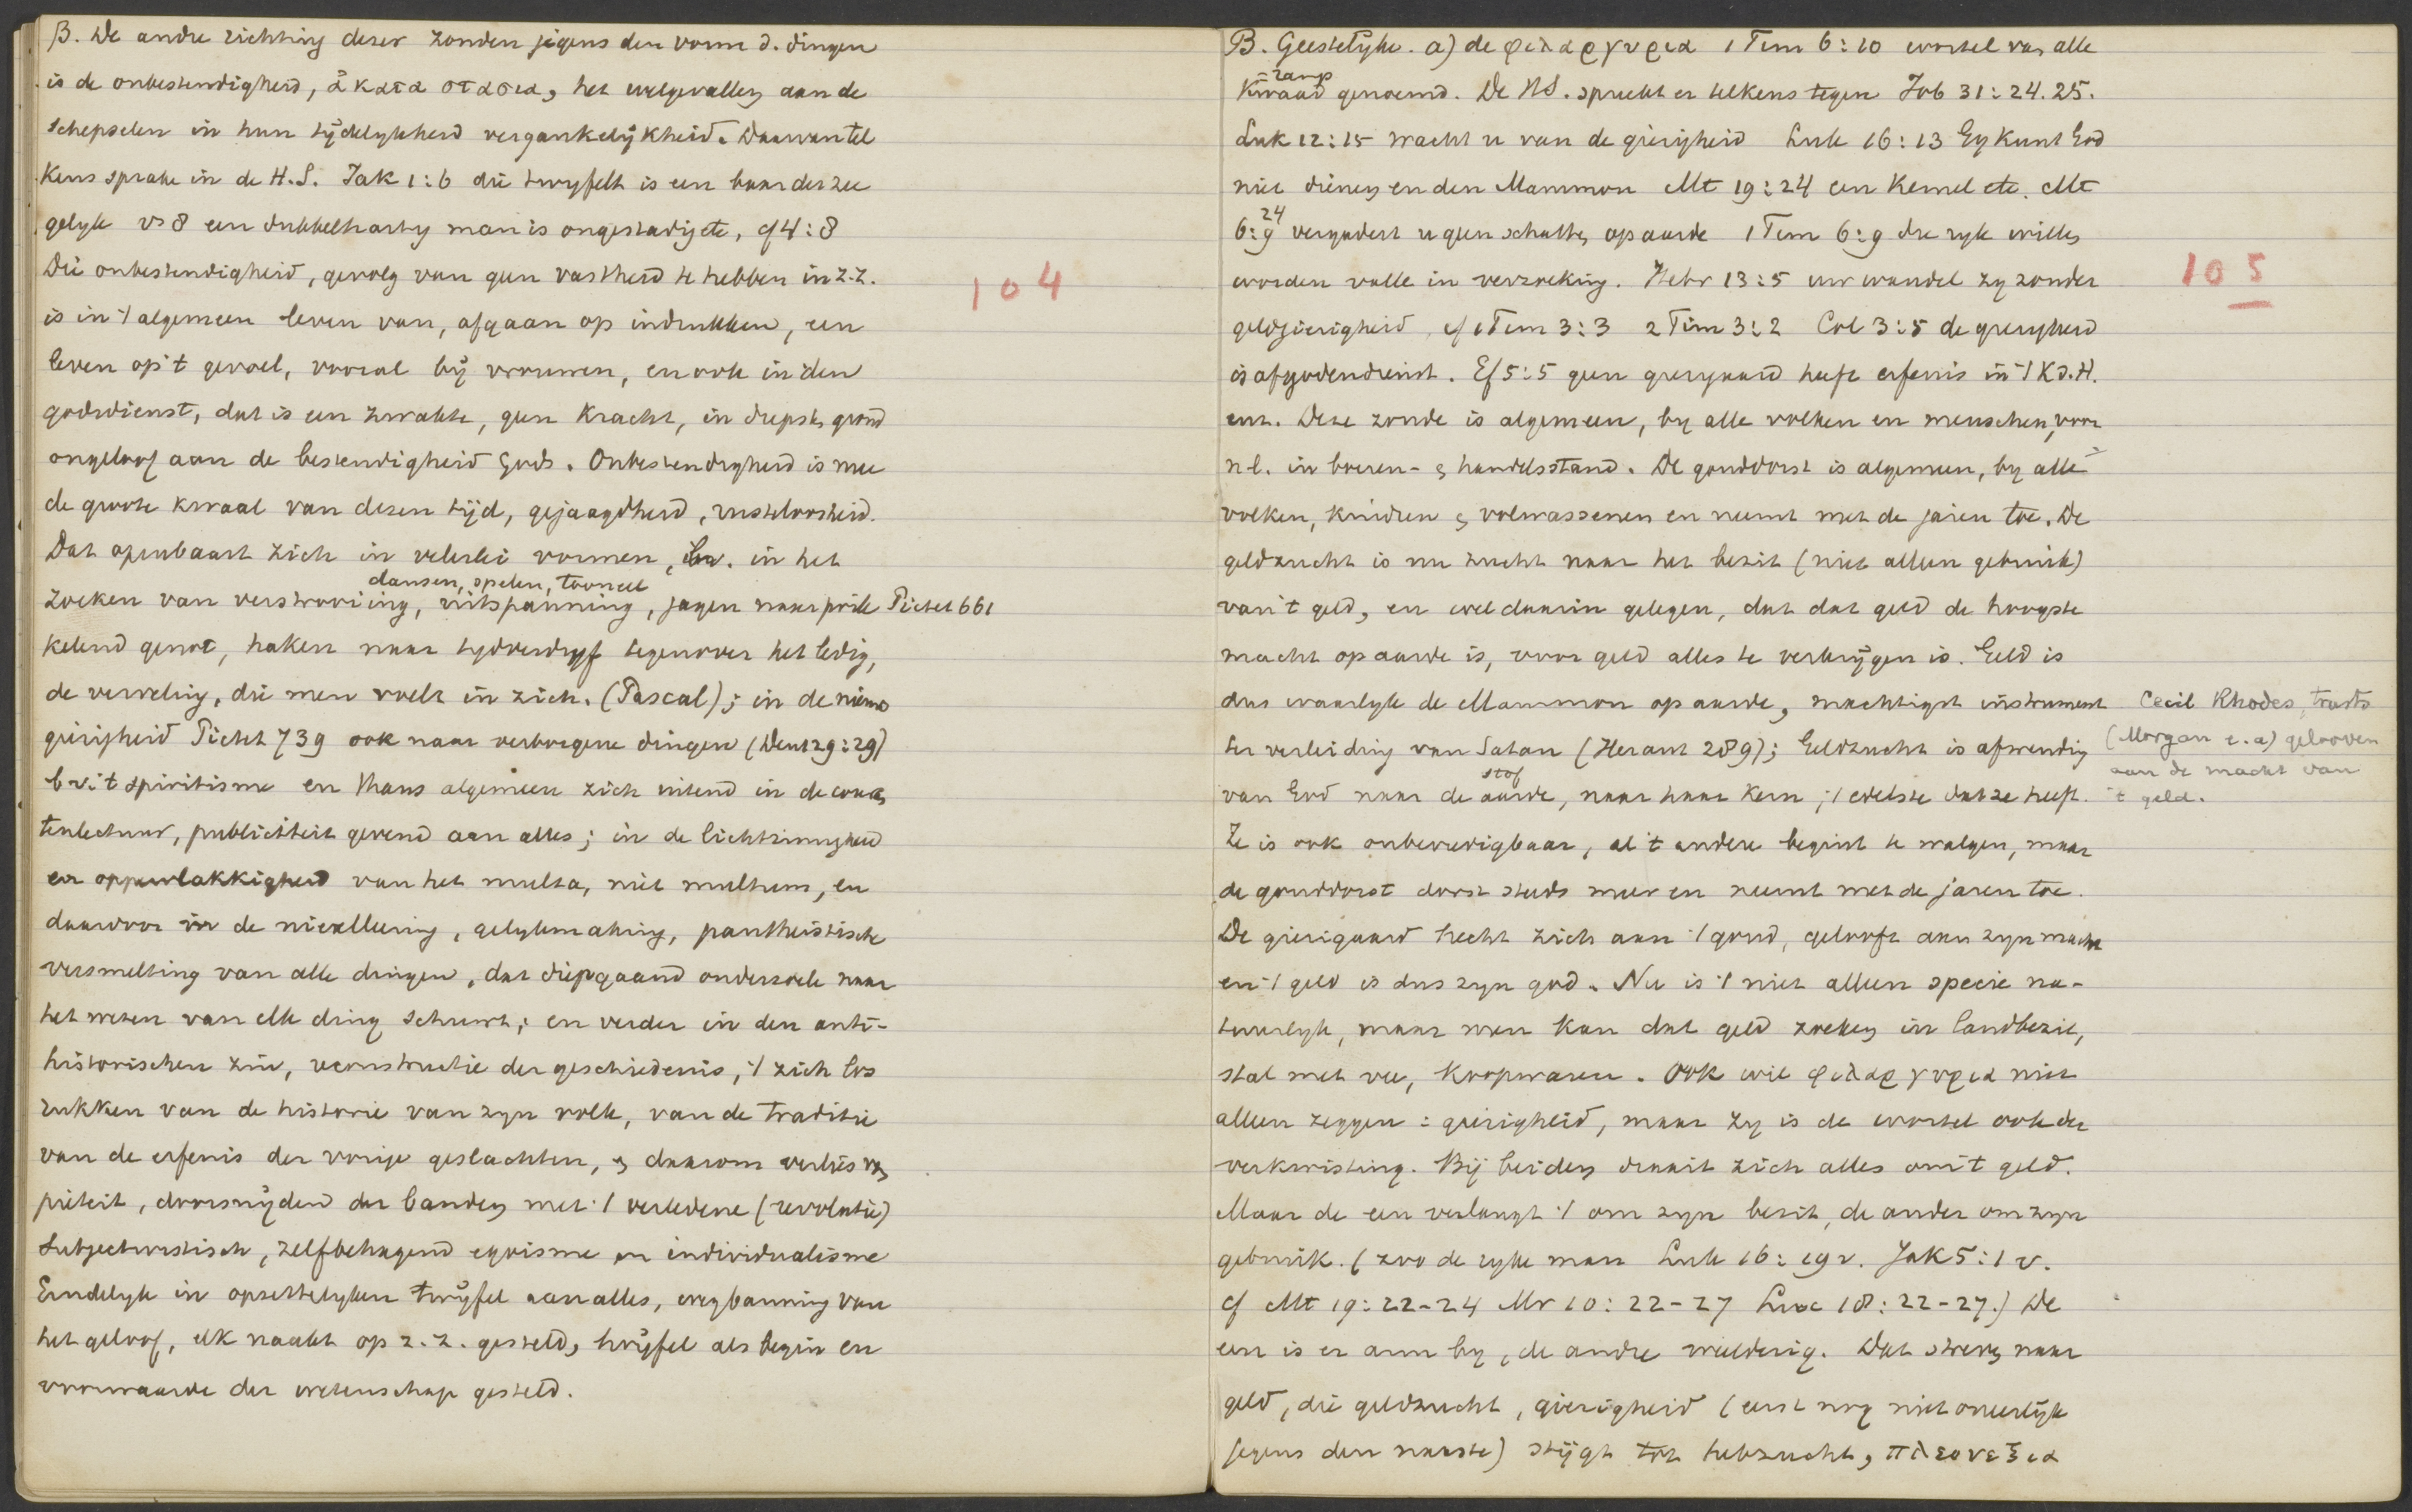 β. De andre richting dezer zonden jegens den vorm d. dingen
is de onbestendigheid, ἀκαταστασια, het welgevallen aan de
schepselen in hun tijdelykheid vergankelijkheid. Daarvan tel
kens sprake in de H.S. Jak 1:6 die twyfelt is een baar der zee
gelyk vs 8 een dubbelhartig man is ongestadig etc, cf 4:8
Die onbestendigheid, gevolg van geen vastheid te hebben in z.z.
is in 't algemeen leven van, afgaan op indrukken, een
leven op 't gevoel, vooral bij vrouwen, en ook in den
godsdienst, dat is een zwakte, geen kracht, in diepsten grond
ongeloof aan de bestendigheid Gods. Onbestendigheid is mee
de groote kwaal van dezen tijd, gejaagdheid, rusteloosheid.
Dat openbaart zich in velerlei vormen, bv. in het
dansen, spelen, tooneel
zoeken van verstrooiing, uitspanning, jagen naar prik Pictet 661
kelend genot, haken naar tydverdryf tegenover het ledig,
de verveling, die men voelt in zich. (Pascal); in de nieuws
gierigheid Pictet 739 ook naar verborgene dingen (Deut 29:29)
b.v. 't spiritisme en thans algemeen zich uitend in de couran
tenlectuur, publiciteit gevend aan alles; in de lichtzinnigheid
en oppervlakkigheid van het multa, niet multum, en
daardoor in de nivelleering, gelykmaking, pantheistische
versmelting van alle dingen, dat diepgaand onderzoek naar
het wezen van elk ding schuwt; en verder in den anti-
historischen zin, reconstructie der geschiedenis, 't zich los
rukken van de historie van zyn volk, van de traditie
van de erfenis der vorige geslachten, en daarom verlies van
pieteit, doorsnijdend der banden met 't verledene (revolutie)
subjectivistisch, zelfbehagend egoisme en individualisme
Eindelyk in opzettelyken twijfel aan alles, wegbanning van
het geloof, elk naakt op z.z. gesteld, twijfel als begin en
voorwaarde der wetenschap gesteld.
104
B. Geestelijke. a) de φιλαργυρια 1 Tim 6:10 wortel van alle
ramp
kwaad genoemd. De HS. spreekt er telkens tegen Job 31:24.25.
Luk 12:15 wacht u van de gierigheid Luk 16:13 Gy kunt God
niet dienen en den Mammon Mt 19:24 een kemel etc. Mt
24
6:9 vergadert u geen schatten op aarde 1 Tim 6:9 die ryk willen
worden valle in verzoeking. Hebr 13:5 uw wandel zy zonder
geldgierigheid, cf 1 Tim 3:3 2 Tim 3:2 Col 3:5 de gierigheid
is afgodendienst. Ef 5:5 geen gierigaard heeft erfenis in 't K.d.H.
enz. Deze zonde is algemeen, by alle volken en menschen, voor
n.l. in boeren- en handelsstand. De gouddorst is algemeen, by alle
volken, kinderen en volwassenen en neemt met de jaren toe. De
geldzucht is nu zucht naar het bezit (niet alleen gebruik)
van 't geld, en wel daarin gelegen, dat dat geld de hoogste
macht op aarde is, voor geld alles te verkrijgen is. Geld is
dus waarlyk de Mammon op aarde, machtigst instrument
ter verleiding van Satan (Heraut 289); Geldzucht is afwending
stof
van God naar de aarde, naar haar kern, 't edelste dat ze heeft.
Ze is ook onbevredigbaar, al 't andere begint te walgen, maar
de gouddorst dorst steeds meer en neemt met de jaren toe.
De gierigaard hecht zich aan 't goud, gelooft aan zyn macht
en 't geld is dus zyn god. Nu is 't niet alleen specie na-
tuurlyk, maar men kan dat geld zoeken in landbezit,
stal met vee, koopwaren. Ook wil φιλαργυρια niet
alleen zeggen: gierigheid, maar zy is de wortel ook der
verkwisting. Bij beiden draait zich alles om 't geld.
Maar de een verlangt 't om zyn bezit, de ander om zyn
gebruik. (zoo de ryke man Luk 16:19v. Jak 5:1 v.
cf Mt 19:22-24 Mr 10:22-27 Luc 18:22-27.) De
een is er arm by, de andre weelderig. Dat streven naar
geld, die geldzucht, gierigheid (eerst nog niet oneerlijk
jegens den naaste) stijgt tot hebzucht, πλεονεξια
105
Cecil Rhodes, trusts
(Morgan e.a) gelooven
aan de macht van
't geld.